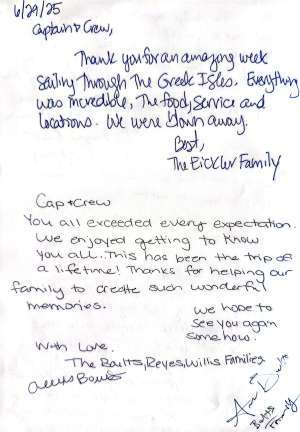 6/29/25
Captain & Crew,
Thank you for an amazing week
sailing Through The Greek Isles. Everything
was incredible, The food, Service and
locations. We were blown away.
Best,
The Eickler Family
Cap + Crew
You all exceeded every expectation.
We enjoyed getting to know
you all.. This has been the trip of
a lifetime! Thanks for helping our
family to create such wonderful
memories.
We hope to
see you again
somehow.
With Love.
The Baults, Reyes, Willis Families
Family